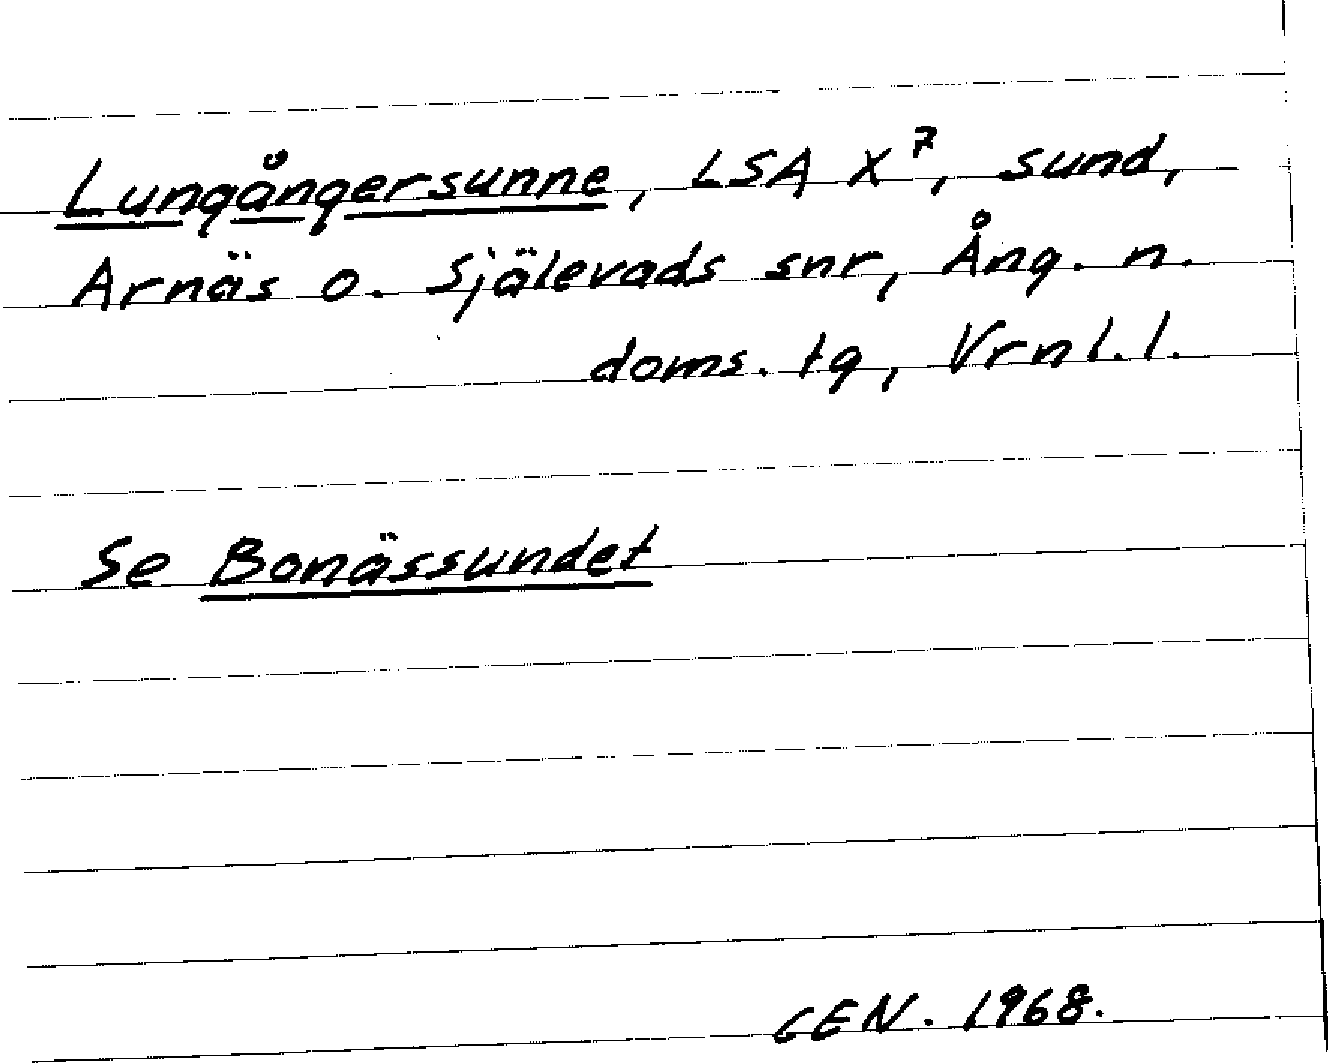 Lungångersunne, LSA X⁷, sund,
Arnäs o. Själevads snr, Ång. n.
doms. tg, Vrnl. l.
Se Bonässundet
GEN. 1968.